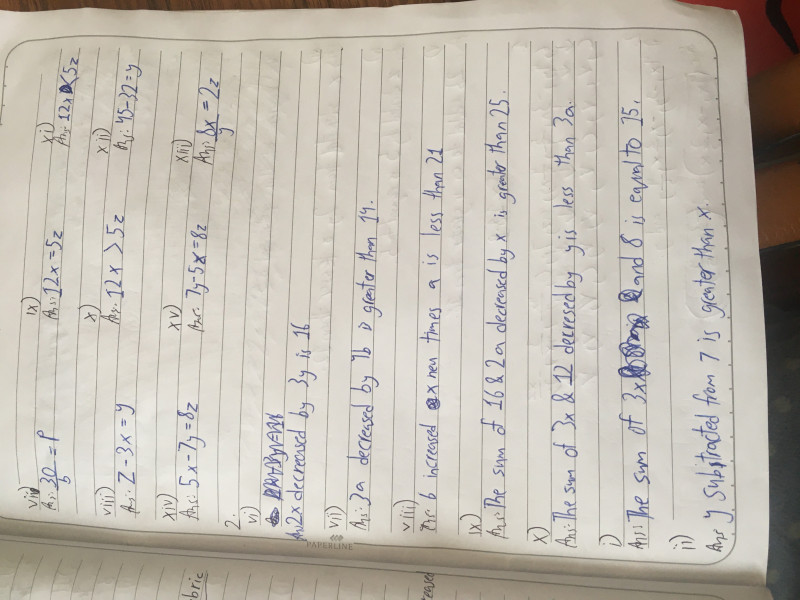 vii) ix) xi)
Ans: 30/b = P Ans: 12x = 5z Ans: 12x < 5z
viii) x) xii)
Ans: z - 3x = y Ans: 12x > 5z Ans: 45-32 = y
xiv) xv) xiii)
Ans: 5x - 7y = 8z Ans: 7y - 5x = 8z Ans: 6x/y = 2z
2.
vi)
Ans: 2x decreased by 3y is 16
vii)
Ans: 3a decreased by 7b is greater than 14.
viii)
Ans: 6 increased times a is less than 21
ix)
Ans: The sum of 16 & 2a decreased by x is greater than 25.
x)
Ans: The sum of 3x & 12 decresed by y is less than 3a.
i)
Ans: The sum of 3x and 8 is equal to 15.
ii)
Ans: y Subtracted from 7 is greater than x.
PAPERLINE
bric
reased